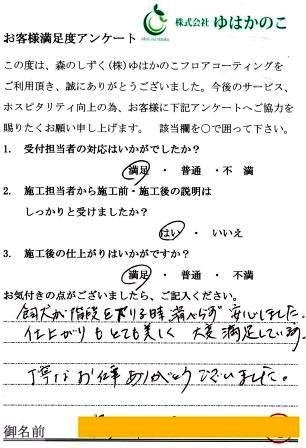 株式会社 ゆはかのこ
お客様満足度アンケート
この度は、森のしずく(株)ゆはかのこフロアコーティングを
ご利用頂き、誠にありがとうございました。今後のサービス、
ホスピタリティ向上の為、お客様に下記アンケートへご協力を
賜りたくお願い申し上げます。 該当欄を○で囲って下さい。
1. 受付担当者の対応はいかがでしたか?
満足 ・ 普通 ・ 不 満
2. 施工担当者から施工前・施工後の説明は
しっかりと受けましたか?
はい ・ いいえ
3. 施工後の仕上がりはいかがですか?
満足 ・ 普通 ・ 不満
お気付きの点がございましたら、ご記入ください。
飼犬が階段を下りる時 滑べらず 安心しました。
仕上がりもとても美しく 大変満足しています。
丁寧なお仕事ありがとうございました。
御名前